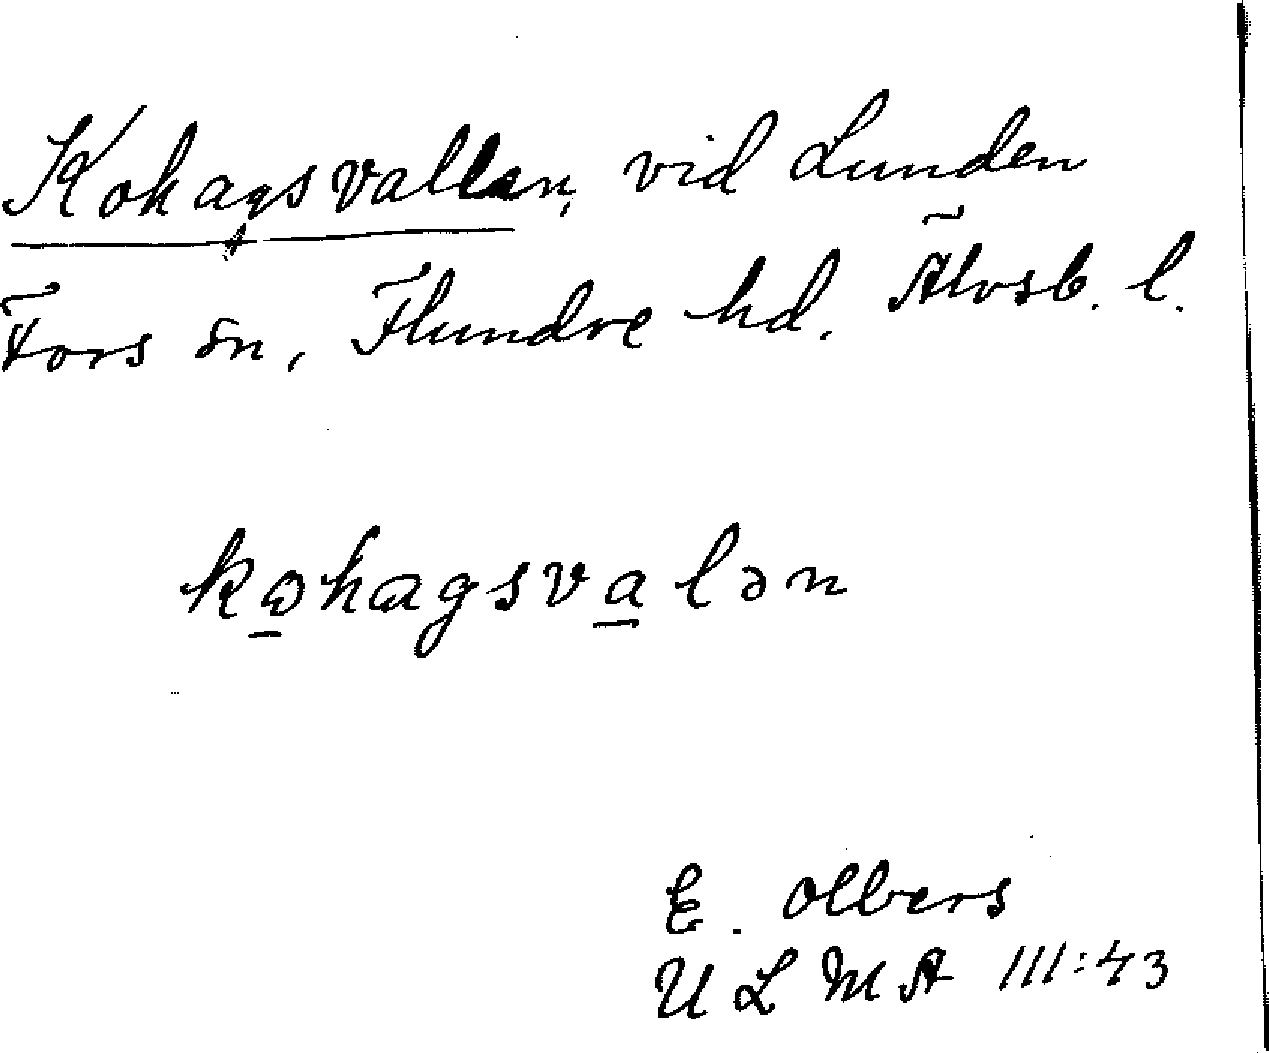 Kohagsvallen, vid Lunden
Fors sn, Flundre hd. Älvsb. l.
kohagsvalən
E. Olbers
ULMA III:43